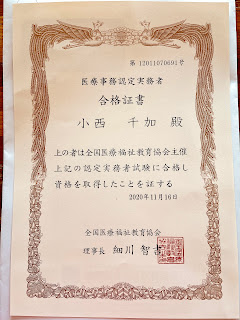 第 12011070691号
医療事務認定実務者
合格証書
小西 千加 殿
上の者は全国医療福祉教育協会主催
上記の認定実務者試験に合格し
資格を取得したことを証する
2020年11月16日
全国医療福祉教育協会
理事長 細川 智吉